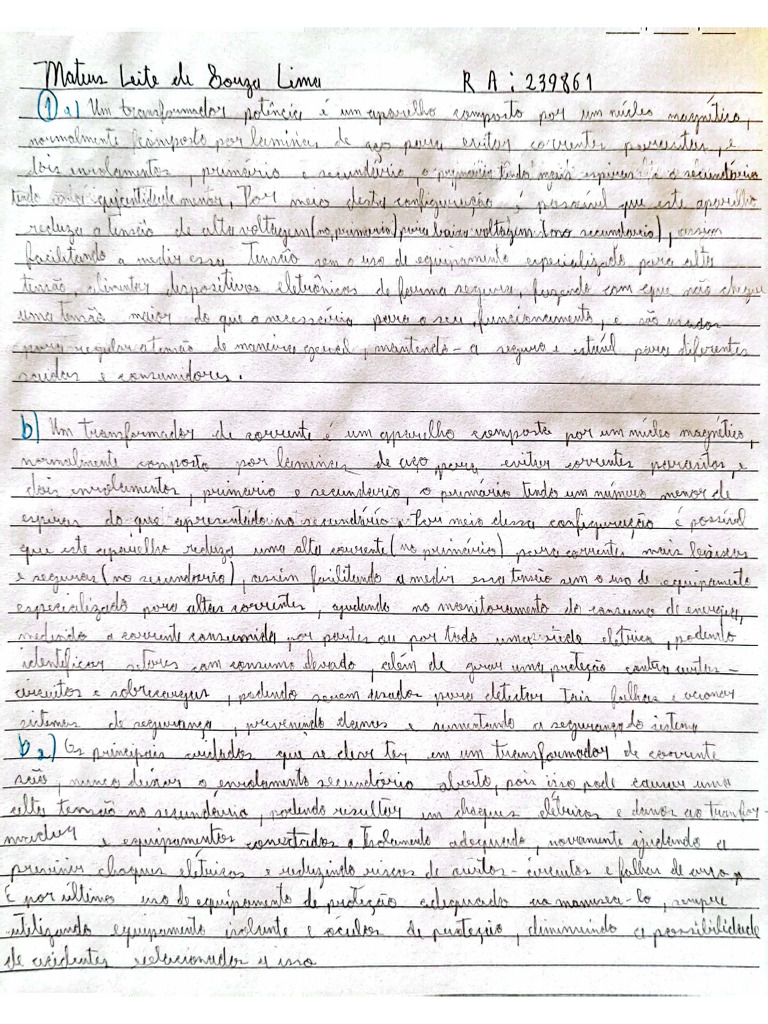 Mateus Leite de Souza Lima R A : 239861
1 a) Um transformador potência é um aparelho composto por um núcleo magnético,
normalmente composto por laminas de aço para evitar correntes parasitas, e
dois enrolamentos, primário e secundário, o primário tendo mais espiras e o secundário
tendo quantidade menor, Por meio desta configuração é possível que este aparelho
reduza a tensão de alta voltagem (no primario) para baixa voltagem (no secundario), assim
facilitando a medir essa Tensão sem o uso de equipamento especializado para alta
tensão, alimentar dispositivos eletrônicos de forma segura, fazendo com que não chegue
uma tensão maior do que a necessário para o seu funcionamento, e são usados
para regular a tensão de maneira geral, mantendo-a seguro e estável para diferentes
saidas e consumidores.
b) Um transformador de corrente é um aparelho composto por um núcleo magnético,
normalmente composto por laminas de aço para evitar correntes parasitas, e
dois enrolamentos, primario e secundario, o primário tendo um número menor de
espiras do que apresentado no secundário. Por meio dessa configuração é possível
que este aparelho reduza uma alta corrente (no primário) para correntes mais baixas
e seguras (no secundario), assim facilitando a medir essa tensão sem o uso de equipamento
especializado para altas correntes, ajudando no monitoramento do consumo de energia,
medindo a corrente consumida por partes ou por toda uma rede elétrica, podendo
identificar setores com consumo elevado, além de gerar uma proteção contra curtos-
circuitos e sobrecargas, podendo serem usados para detectar tais falhas e acionar
sistemas de segurança, prevenindo danos e aumentando a segurança do sistema
b 2) Os principais cuidados que se deve ter em um transformador de corrente
são, nunca deixar o enrolamento secundário aberto, pois isso pode causar uma
alta tensão no secundario, podendo resultar em choques elétricos e danos ao transfor-
mador e equipamentos conectados. Isolamento adequado, novamente ajudando a
prevenir choques eletricos e reduzindo riscos de curtos-circuitos e falhas de
E por último uso de equipamento de proteção adequado ao manusea-lo, sempre
utilizando equipamento isolante e óculos de proteção, diminuindo a possibilidade
de acidentes relacionados a isso